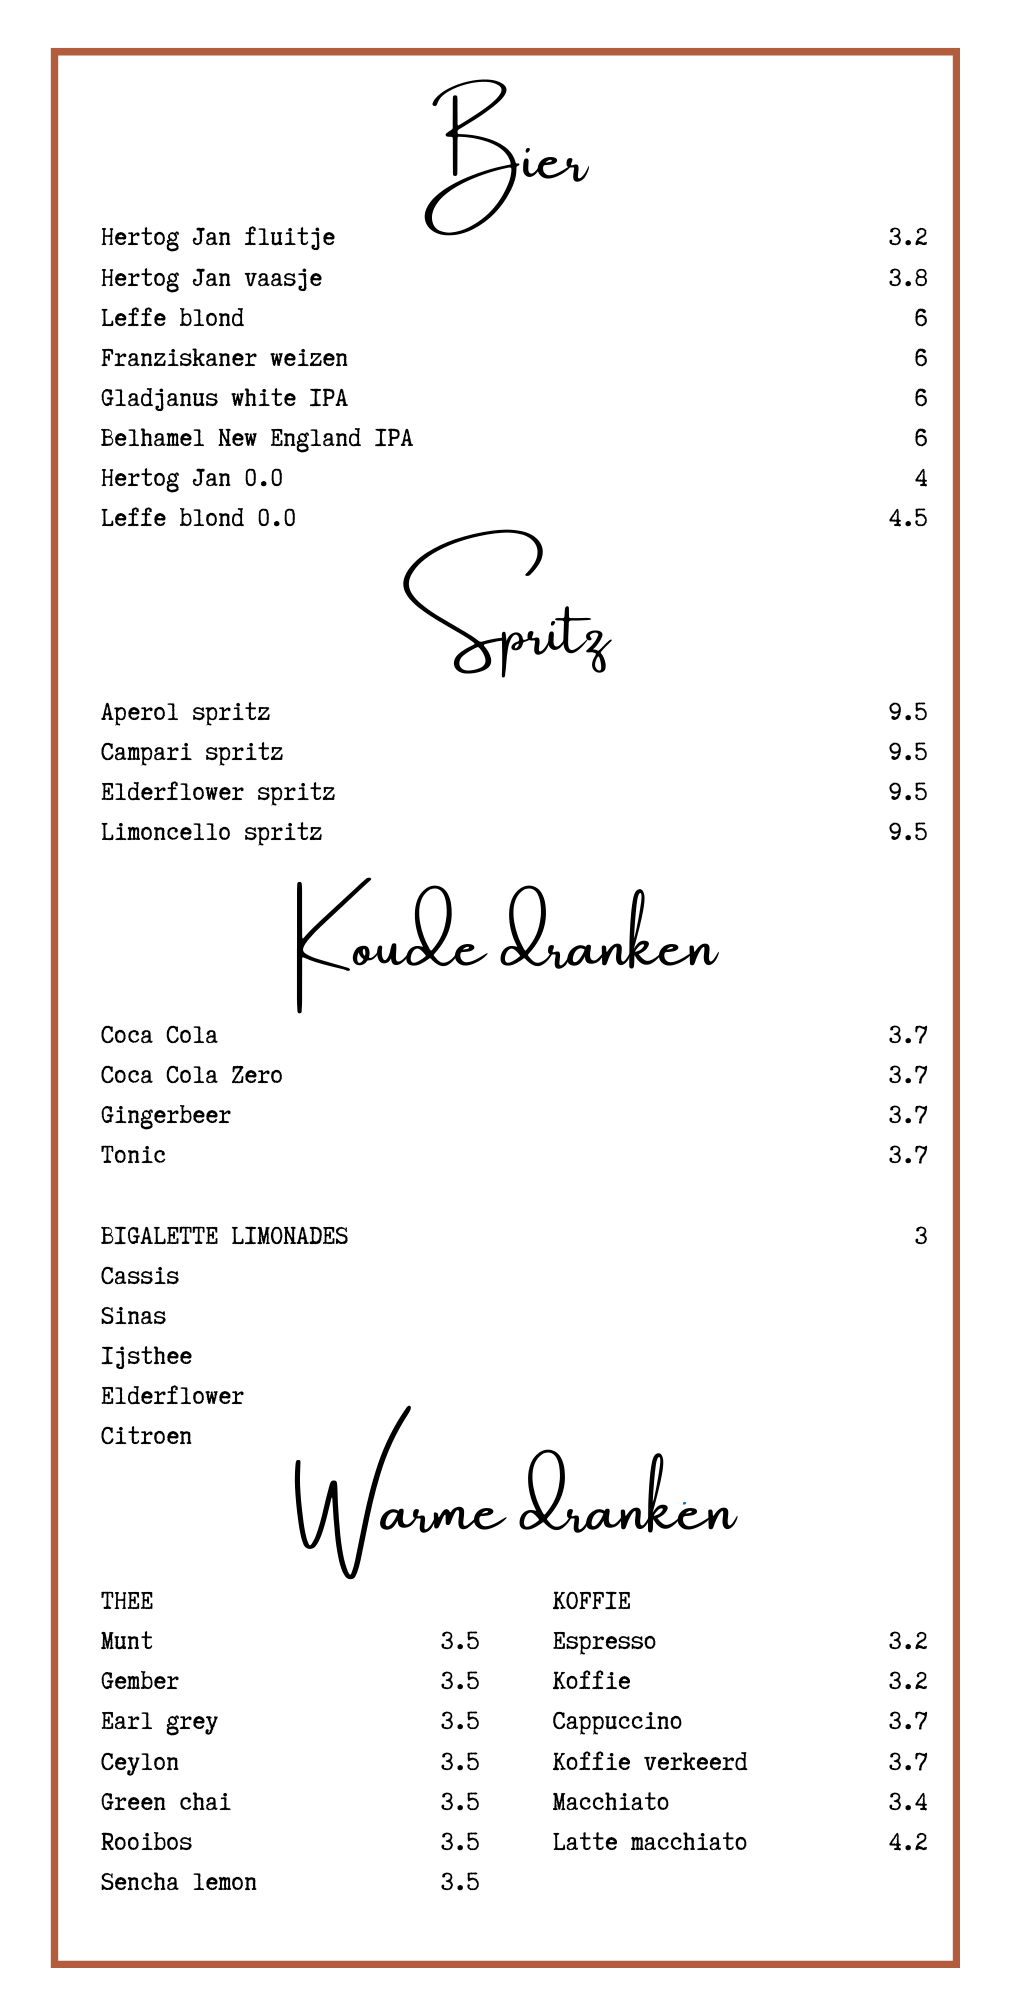 Bier
Hertog Jan fluitje 3.2
Hertog Jan vaasje 3.8
Leffe blond 6
Franziskaner weizen 6
Gladjanus white IPA 6
Belhamel New England IPA 6
Hertog Jan 0.0 4
Leffe blond 0.0 4.5
Spritz
Aperol spritz 9.5
Campari spritz 9.5
Elderflower spritz 9.5
Limoncello spritz 9.5
Koude dranken
Coca Cola 3.7
Coca Cola Zero 3.7
Gingerbeer 3.7
Tonic 3.7
BIGALETTE LIMONADES 3
Cassis
Sinas
Ijsthee
Elderflower
Citroen
Warme dranken
THEE
Munt 3.5
Gember 3.5
Earl grey 3.5
Ceylon 3.5
Green chai 3.5
Rooibos 3.5
Sencha lemon 3.5
KOFFIE
Espresso 3.2
Koffie 3.2
Cappuccino 3.7
Koffie verkeerd 3.7
Macchiato 3.4
Latte macchiato 4.2